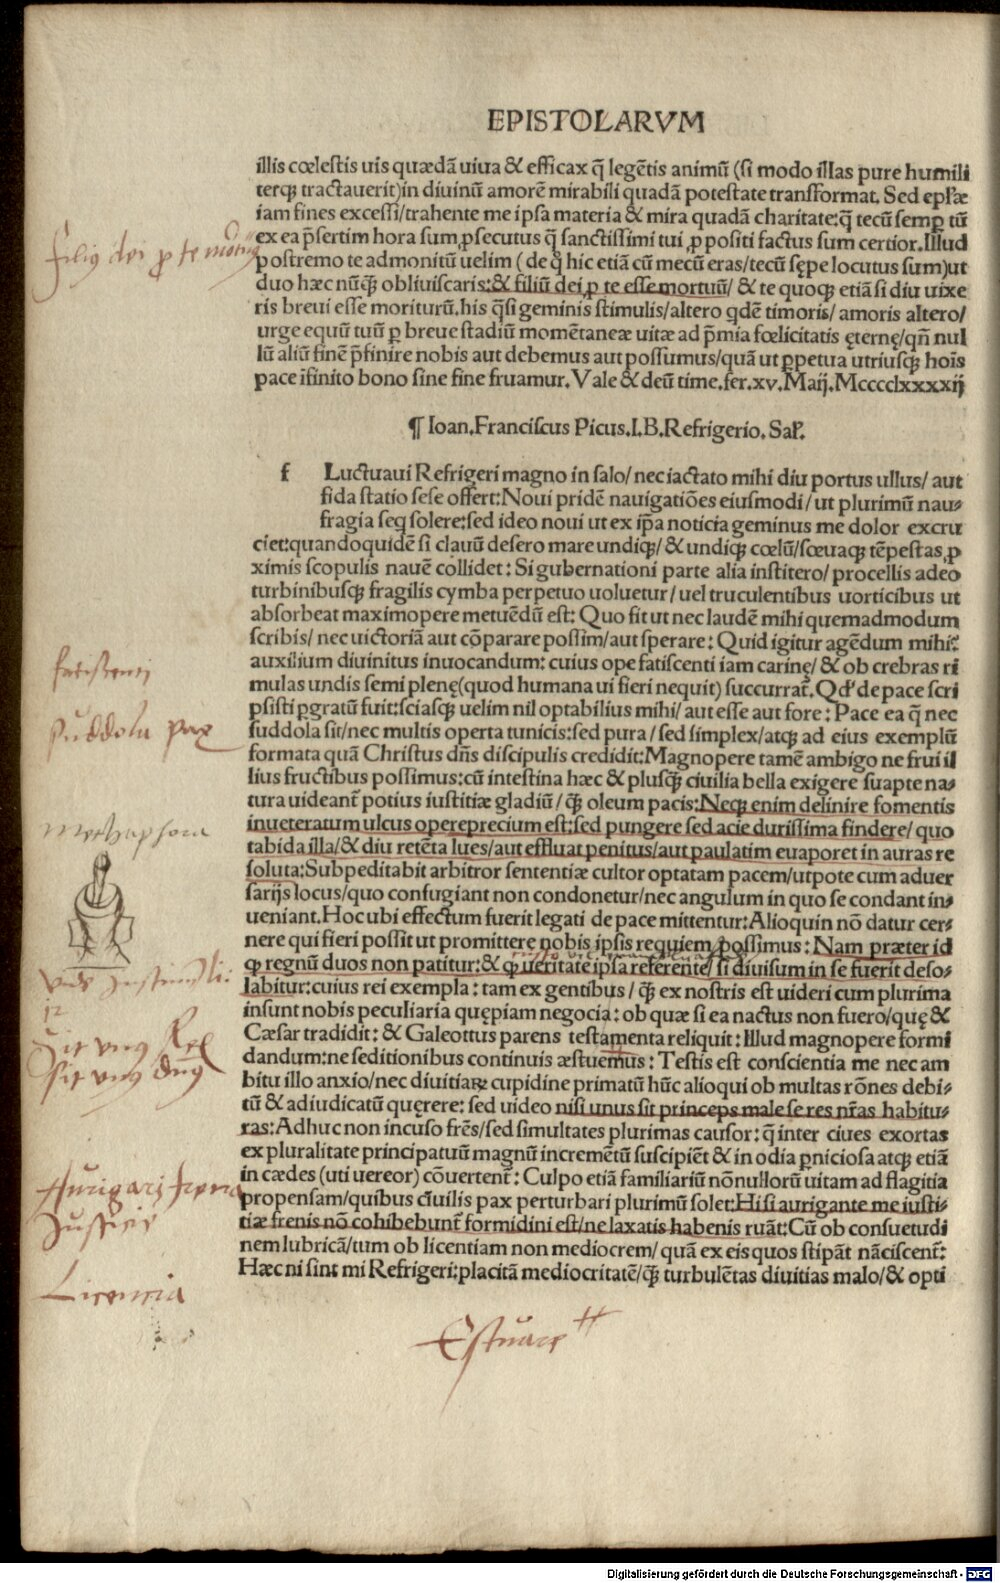 EPISTOLARVM
illis cœlestis uis quædã uiua & efficax q̃ legẽtis animũ (si modo illas pure humili
terq; tractauerit)in diuinũ amorẽ mirabili quadã potestate transformat. Sed ep̃læ
iam fines excessi/trahente me ipsa materia & mira quadã charitate:q̃ tecũ semꝑ tũ
ex ea p̃sertim hora sum,ꝓsecutus q̃ sanctissimi tui ꝓpositi factus sum certior. Illud
Filius dei ꝓ te mortuus
postremo te admonitũ uelim ( de q̃ hic etiã cũ mecũ eras/tecũ sępe locutus sum)ut
duo hæc nũq̃ꝫ obliuiscaris:& filiũ dei ꝓ te esse mortuũ/ & te quoq; etiã si diu uixe
ris breui esse moriturũ.his q̃si geminis stimulis/altero qdẽ timoris/ amoris altero/
urge equũ tuũ ꝑ breue stadiũ momẽtaneæ uitæ ad p̃mia fœlicitatis ęternę/qñ nul
lũ aliũ finẽ p̃finire nobis aut debemus aut possumus/quã ut ꝑpetua utriusq; hoĩs
pace ĩfinito bono sine fine fruamur. Vale & deũ time.fer.xv. Maij. Mcccclxxxxij
¶ Ioan.Franciscus Picus.I.B.Refrigerio. Sal̃.
f Luctuaui Refrigeri magno in salo/ nec iactato mihi diu portus ullus/ aut
fida statio sese offert:Noui pridẽ nauigatiões eiusmodi/ ut plurimũ nau-
fragia seq solere:sed ideo noui ut ex ip̃a noticia geminus me dolor excru
ciet:quandoquidẽ si clauũ desero mare undiq;/ & undiq; cœlũ/sæuaq; tẽpestas,ꝓ
ximis scopulis nauẽ collidet: Si gubernationi parte alia institero/ procellis adeo
turbinibusq; fragilis cymba perpetuo uoluetur/ uel truculentibus uorticibus ut
absorbeat maximopere metuẽdũ est: Quo fit ut nec laudẽ mihi quemadmodum
scribis/ nec uictoriã aut cõparare possim/aut sperare: Quid igitur agẽdum mihi?
fatiscenti
auxilium diuinitus inuocandum: cuius ope fatiscenti iam carinę/ & ob crebras ri
mulas undis semi plenę(quod humana ui fieri nequit) succurrat̃. Qđ de pace scri
psisti ꝑgratũ fuit:sciasq; uelim nil optabilius mihi/ aut esse aut fore: Pace ea q̃ nec
suddola pax
suddola sit/nec multis operta tunicis:sed pura/sed simplex/atq; ad eius exemplũ
formata quã Christus dñs discipulis credidit:Magnopere tamẽ ambigo ne frui il
lius fructibus possimus:cũ intestina hæc & plusq̃ꝫ ciuilia bella exigere suapte na-
tura uideant̃ potius iustitiæ gladiũ/ q̃ꝫ oleum pacis:Neq; enim delinire fomentis
methaphora
inueteratum ulcus opereprecium est:sed pungere sed acie durissima findere/ quo
tabida illa/& diu retẽta lues/aut effluat penitus/aut paulatim euaporet in auras re
soluta:Subpeditabit arbitror sententiæ cultor optatam pacem/utpote cum aduer
sarijs locus/quo confugiant non condonetur/nec angulum in quo se condant in-
ueniant.Hoc ubi effectum fuerit legati de pace mittentur:Alioquin nõ datur cer-
nere qui fieri possit ut promittere nobis ipsis requiem possimus: Nam præter id
ꝙ regnũ duos non patitur:& ꝙ ueritate ipsa referente/ si diuisum in se fuerit deso-
labitur:cuius rei exempla: tam ex gentibus / q̃ꝫ ex nostris est uideri cum plurima
12
insunt nobis peculiaria quępiam negocia: ob quæ si ea nactus non fuero/quę &
Sit vnus Rex
Cæsar tradidit: & Galeottus parens testamenta reliquit: Illud magnopere formi
sit vnus dñus
dandum:ne seditionibus continuis æstuemus: Testis est conscientia me nec am
bitu illo anxio/nec diuitiaꝝ cupidine primatũ hũc alioqui ob multas rões debi-
tũ & adiudicatũ quęrere: sed uideo nisi unus sit princeps male se res nr̃as habitu-
ras:Adhuc non incuso frẽs/sed simultates plurimas causor: q̃ inter ciues exortas
ex pluralitate principatuũ magnũ incremẽtũ suscipiẽt & in odia ꝑniciosa atq; etiã
in cædes (uti uereor) cõuertent̃: Culpo etiã familiariũ nõnullorũ uitam ad flagitia
propensam/quibus ciuilis pax perturbari plurimũ solet:Hi si aurigante me iusti-
Iusticie
tiæ frenis nõ cohibebunt̃ formidini est/ne laxatis habenis ruãt:Cũ ob consuetudi
nem lubricã/tum ob licentiam non mediocrem/ quã ex eis quos stipãt nãciscent̃:
Licencia
Hæc ni sint mi Refrigeri:placitã mediocritatẽ/q̃ꝫ turbulẽtas diuitias malo/& opti
Estuare
Digitalisierung gefördert durch die Deutsche Forschungsgemeinschaft - DFG